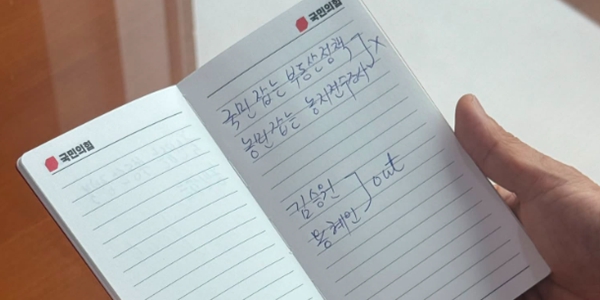 국민의힘
국민의힘
국민 잡는 부동산정책
농민 잡는 농지전수조사
X
김승원
용혜인
out